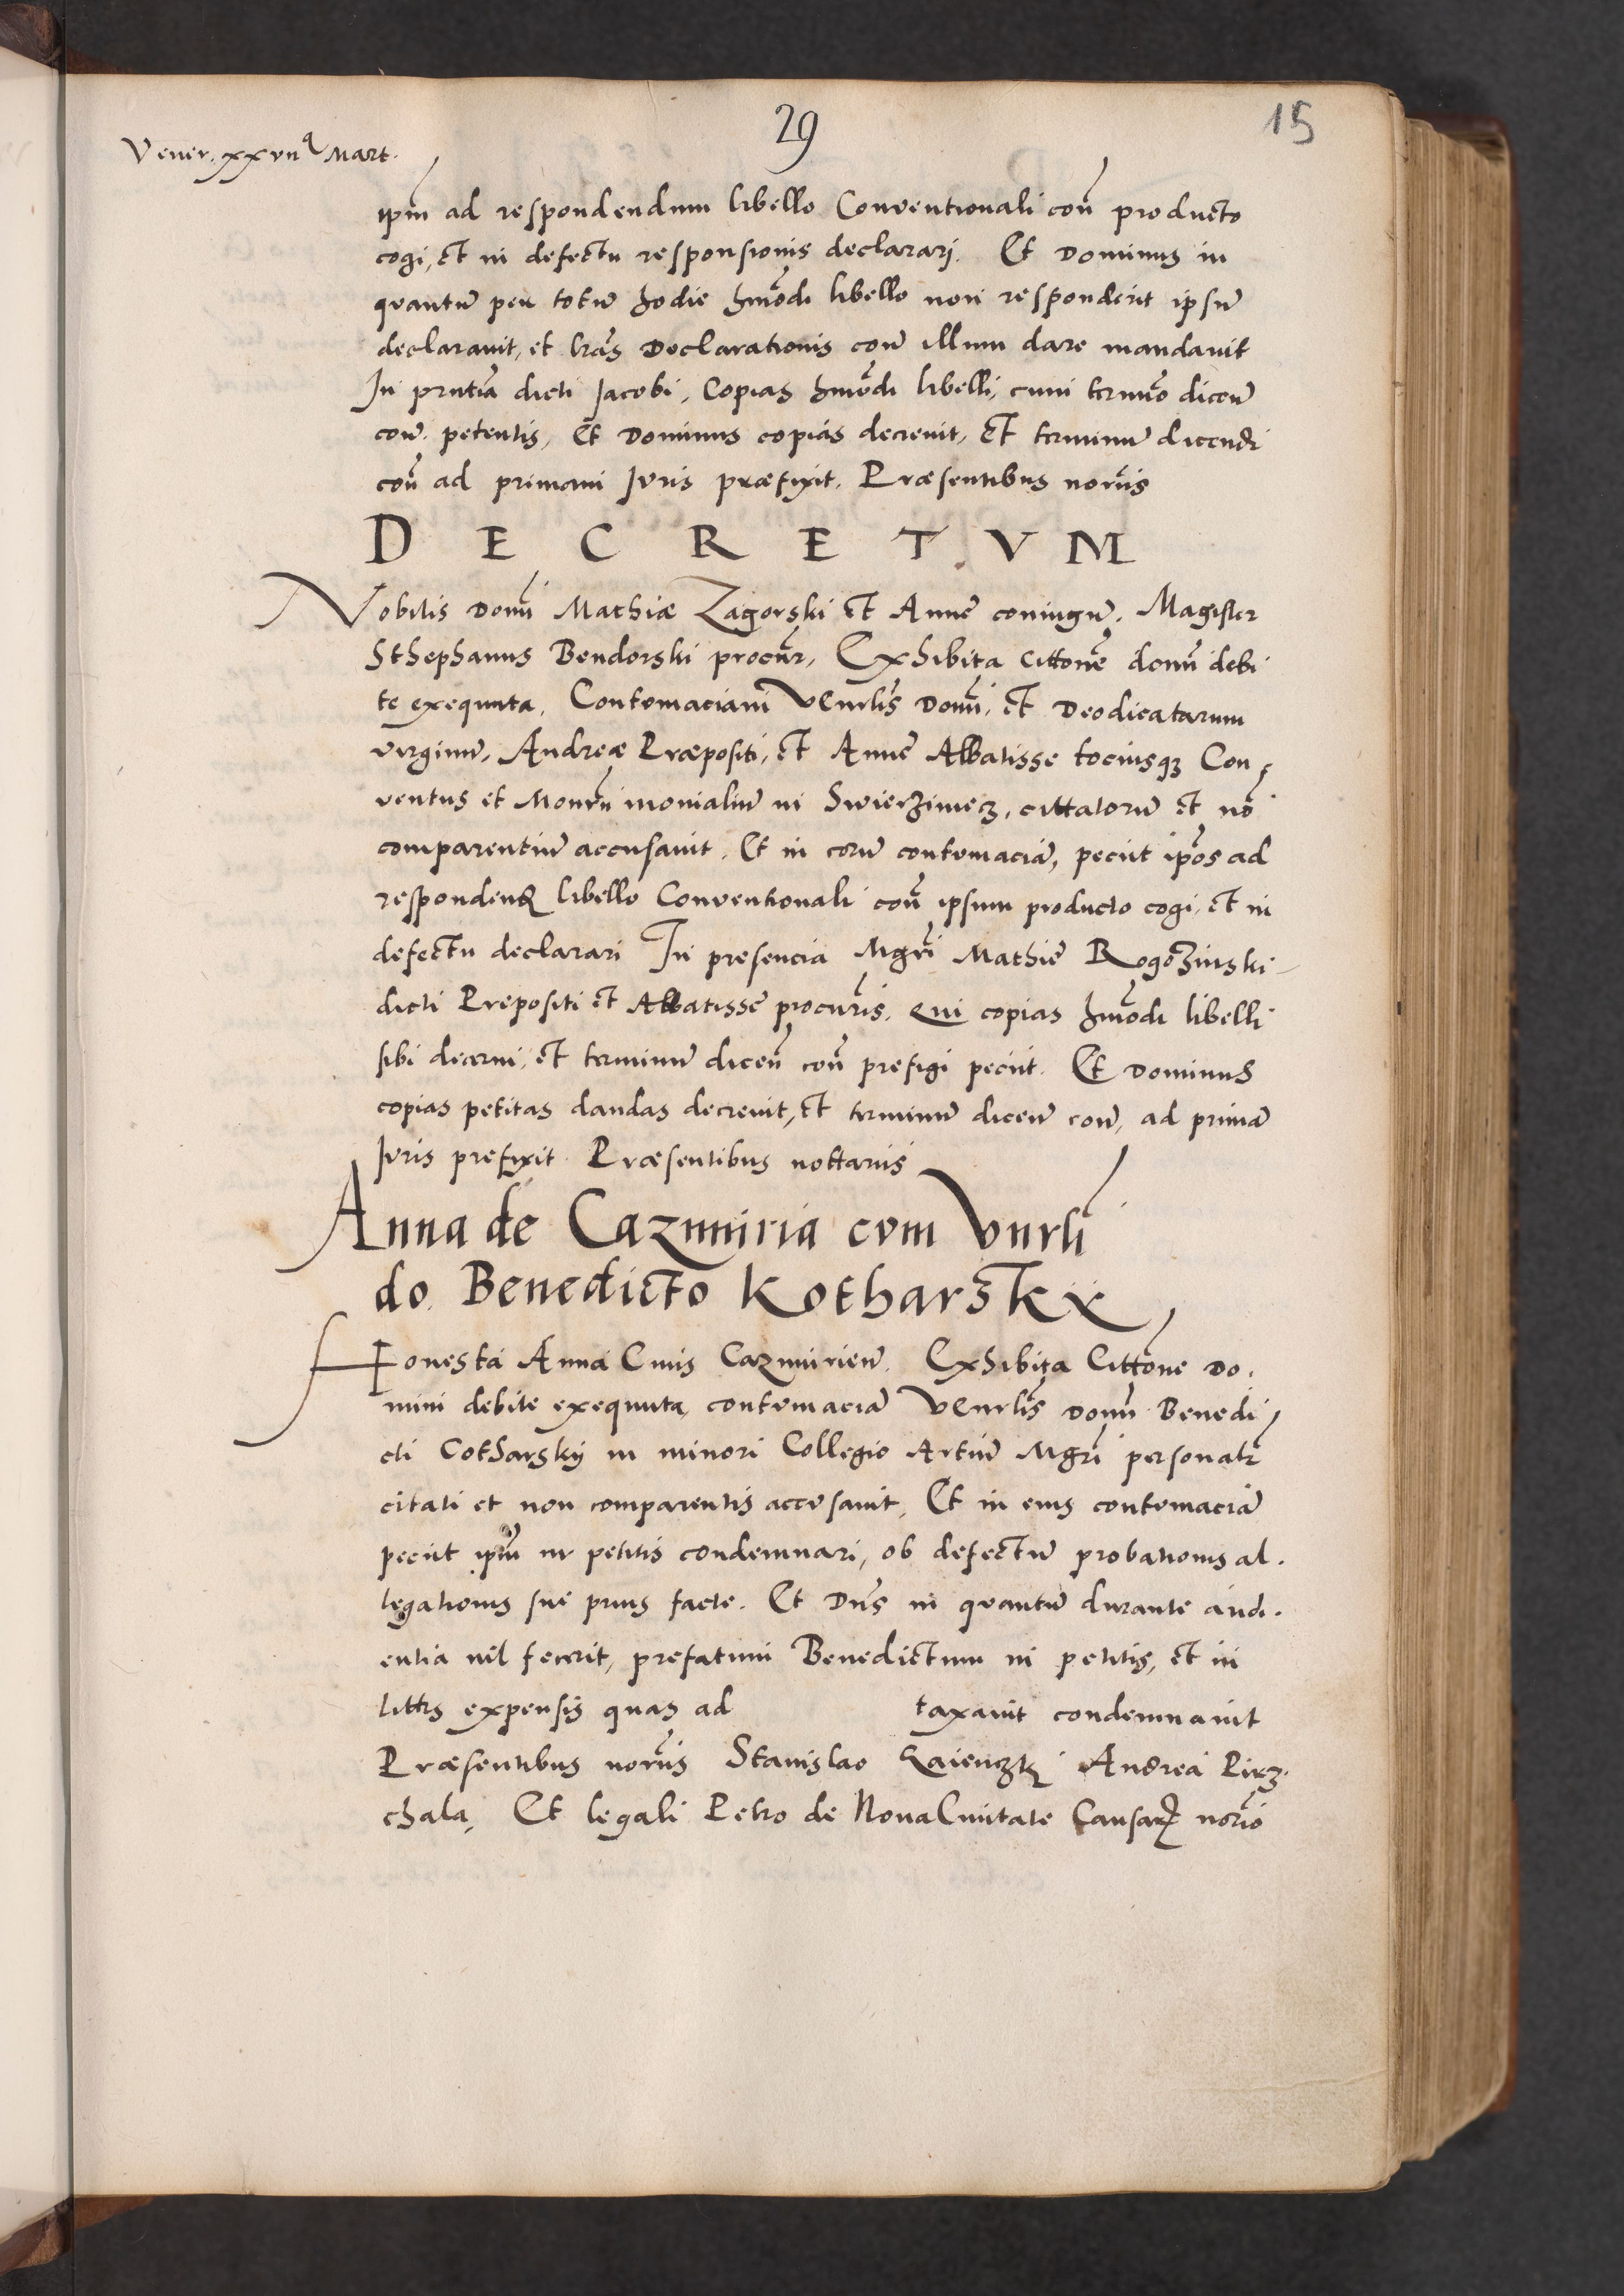 29
15
Vener. xxvii<sup>a</sup> Mart.
ipm̄ ad respondendum libello Conventionali con̄ producto
cogi, et in defectu responsionis declarari. Et Dominus in
quantū per totū hodie hmōdi libello non responderit ipsū
declaravit, et lrās Declarationis con̄ illum dare mandavit
In pn̄tiā dicti Jacobi, Copias hmōdi libelli, cum termīo dicen̄
con̄. petentis, Et Dominus copias decrevit, Et terminū dicendi
con̄ ad primam Juris præfixit. Præsentibus nor̄iis
D E C R E T V M
Nobilis Domī Mathiæ Zagorski et Anne coniugū. Magister
Sthephanus Bendorski procūr, Exhibita cittōne domī debi
te exequuta, Contumaciam Venrlis Domī, et Deodicatarum
virginū, Andreæ Præpositi, et Anne Abbatisse tociusqꝫ Con
ventus et Mon̄rii monialiū in Swierzinecz, cittatorū et nō
comparentiū accusavit, Et in eorū contumaciā, peciit ip̄os ad
respondenꝝ libello Conventionali con̄ ipsum producto cogi, et in
defectu declarari In presencia Mgr̄i Mathie Rogozinski
dicti Prepositi et Abbatisse procur̄is, qui copias hmōdi libelli
sibi decerni, et terminū dicen̄ con̄ prefigi peciit. Et Dominus
copias petitas dandas decrevit, et terminū dicen̄ con̄, ad primā
Juris prefixit. Præsentibus nottariis
Anna de Cazmiria cvm Vnrli
do. Benedicto Kotharskÿ
Honesta Anna Civis Cazmirien̄. Exhibita Cittōne Do.
mini debite exequuta, contumaciā Venrlis Domī Benedi
cti Cotharskÿ in minori Collegio Artiū Mgr̄i personalr̄
citati et non comparentis accusavit, Et in eius contumaciā
peciit ipm̄ in petitis condemnari, ob defectū probationis al.
legationis sue prius facte. Et Dn̄s in quantū durante audi.
entia nil fecerit, prefatum Benedictum in petitis, et in
littis expensis quas ad taxavit condemnavit
Præsentibus nor̄iis Stanislao Andrea Pirz.
chala, Et legali Petro de Nova Civitate Causarꝝ nor̄io